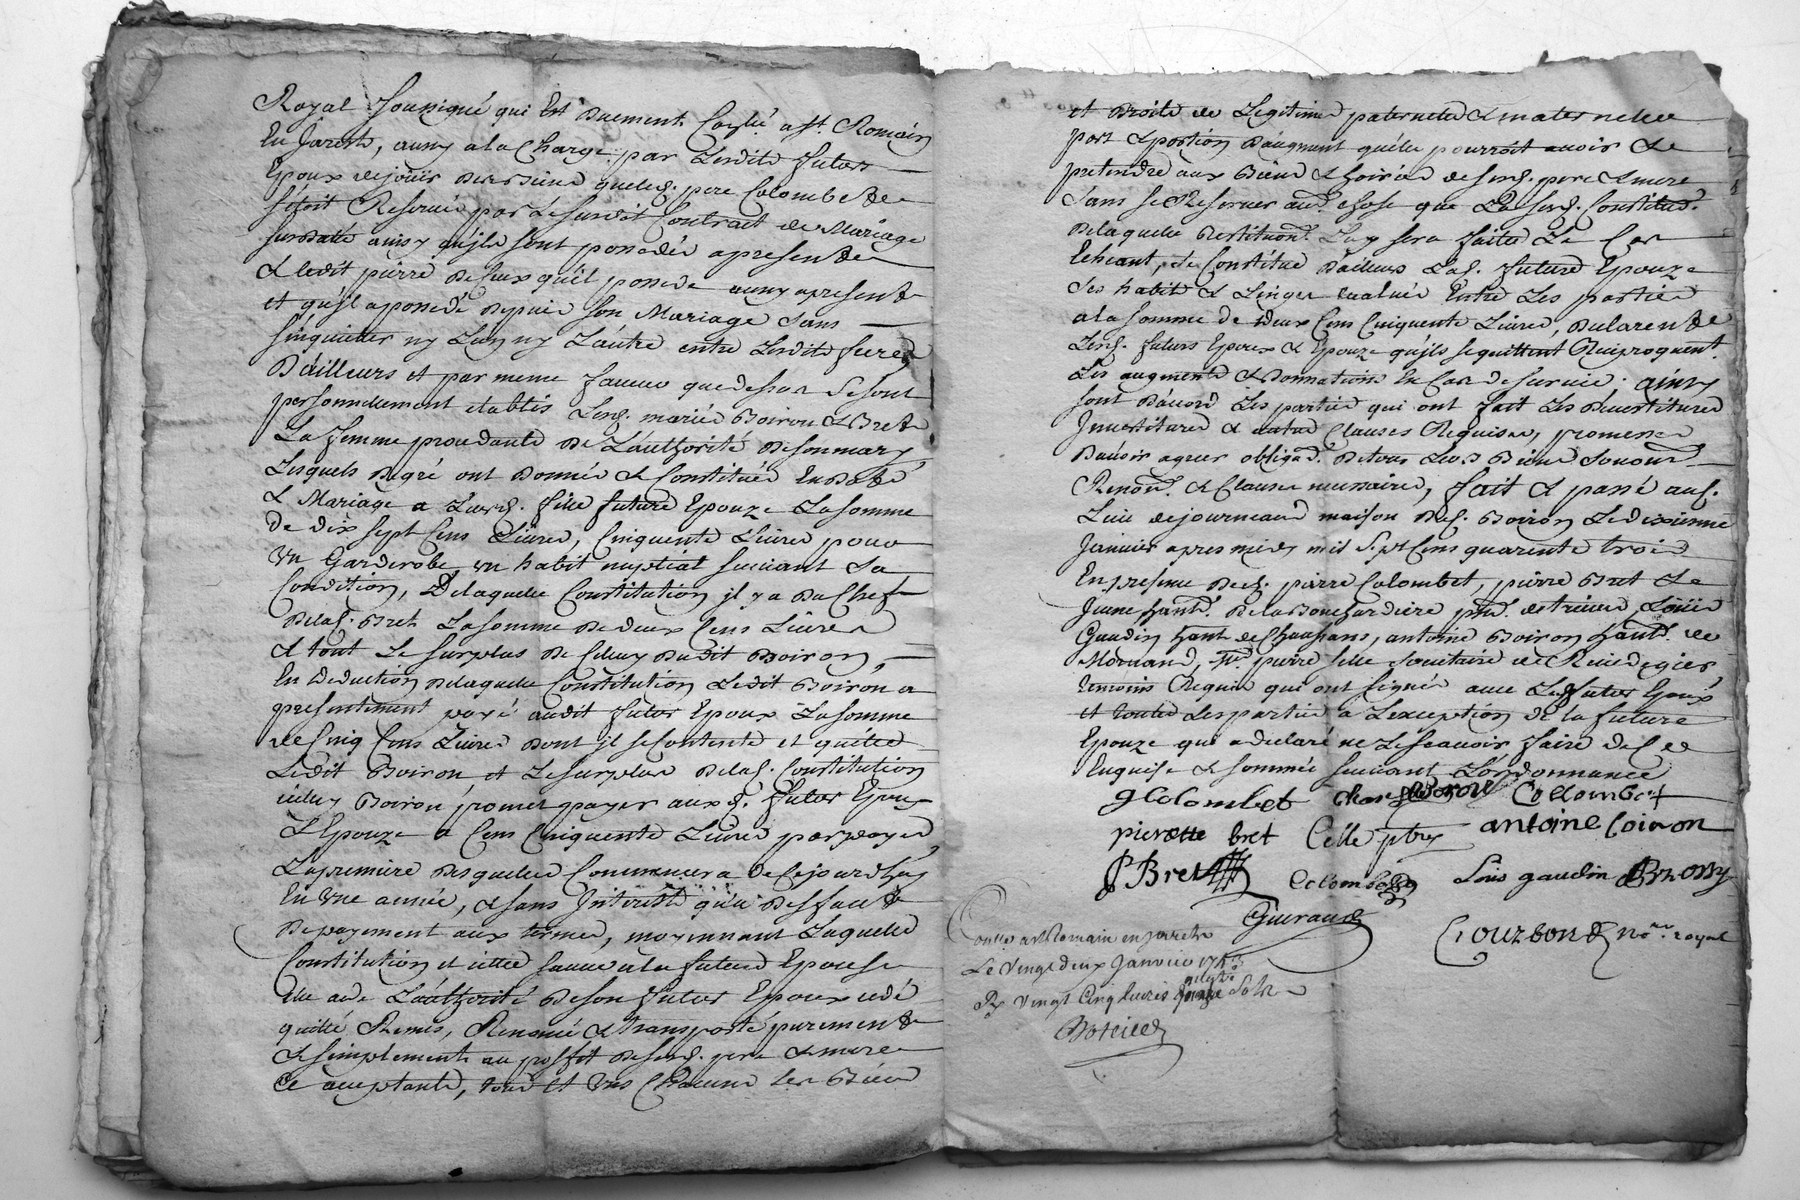 Royal soussigné qui Est Duement Contlé. a St. Romain
En Jarest, aussy ala Charge par Lesdits futurs
Epoux de jouir des Biens queled. pere Colombet de
s'étoit Reservé par le susdit Contrait de Mariage
susdatté ainsy qu'jls sont possedés apresent
& ledit pierre de Ceux qu'il possede aussy apresent
et qu'jl a possedé Depuis son Mariage sans
s'inquieter ny L'un ny L'autre entre Lesdits freres
D'ailleurs et par meme faveur que dessus se sont
personnellement etablis Lesd. mariés Boiron & Bret
La femme procedante De L'authorité de son mary
Lesquels De gré ont Donné & Constitué En Dot
& Mariage a Lad. fille future Epouze La somme
de dix sept Cens Livres, Cinquante Livres pour
un Garderobe un habit nuptial suivant sa
Condition, De laquelle Constitution jl y a Du Chef
De lad. Bret La somme De deux Cens Livres
& tout Le surplus De Celuy Dudit Boiron,
En deduction De laquelle Constitution Ledit Boiron a
presentement payé audit futur Epoux La somme
de Cinq Cens Livres Dont jl se Contente et quitte
Ledit Boiron et Le surplus De lad. Constitution
jcelluy Boiron promet payer auxd. futur Epoux
& Epouze a Cens Cinquante Livres par payes
La premiere Desquelles Commencera de Cejourdhuy
En une année, & sans Interest qu'a Deffaut
De payement aux termes, moyennant Laquelle
Constitution et jcelle sauve a la future Epouse
Elle a de L'authorité De son futur Epoux cedé
quitté Remis, Renoncé & transporté purement
& simplement au proffit De sesd. pere & mere
Ce acceptants, tous et Uns Chacuns les Biens
et Droits de Legitime paternels & maternels
part & portion D'augment qu'elle pourroit avoir &
pretendre aux Biens & hoiries de sesd. pere & mere
Sans se Reserver autre chose que La susd. Constitution.
De laquelle Restitution Luy sera faite Le Cas
Echeant, se Constitue D'ailleurs Lad. future Epouze
ses habits & Linges evalués Entre Les parties
a la somme de Deux Cens Cinquante Livres, Du
Lesd. futurs Epoux & Epouze qu'ils se quittent Reciproquent.
Les augments & Donnations En Cas de survie. ainsy
sont D'accord Les parties qui ont fait Les Devestitures
Jnvestitures & autres Clauses Requises, promesses
D'avoir agreer obligaon. De tous Leurs Biens
Renonon. & Clauses necessaires, fait & passé aud.
Lieu maison Dud. Boiron Le dixieme
Janvier apres midy mil Sept Cens quarente trois
En presence De sr. pierre Colombet, pierre Bret Le
Jeune hantt. De la Bouchardiere psse. de trèves Louis
Gaudin hant. de Chaussans, antoine Boiron hantt. de
Mornand, Me. pierre Celle societaire de Rivedegier
temoins Requis qui ont signé avec Le futur Epoux
et toutes Les parties a L'exception de la future
Epouze qui a declaré ne Le scavoir faire de ce
Enquise & sommée suivant L'ordonnance
J Colombet Boiron Collombet
pierette bret Celle ptre antoine Coiron
P Bret Colombet Louis gaudin Brossy
Guiraud
Bourbon Nore. royal
Conllé a St Romain en Jarest
Le Vingt deux Janvier 1743
Rx Vingt Cinq Livres Sols